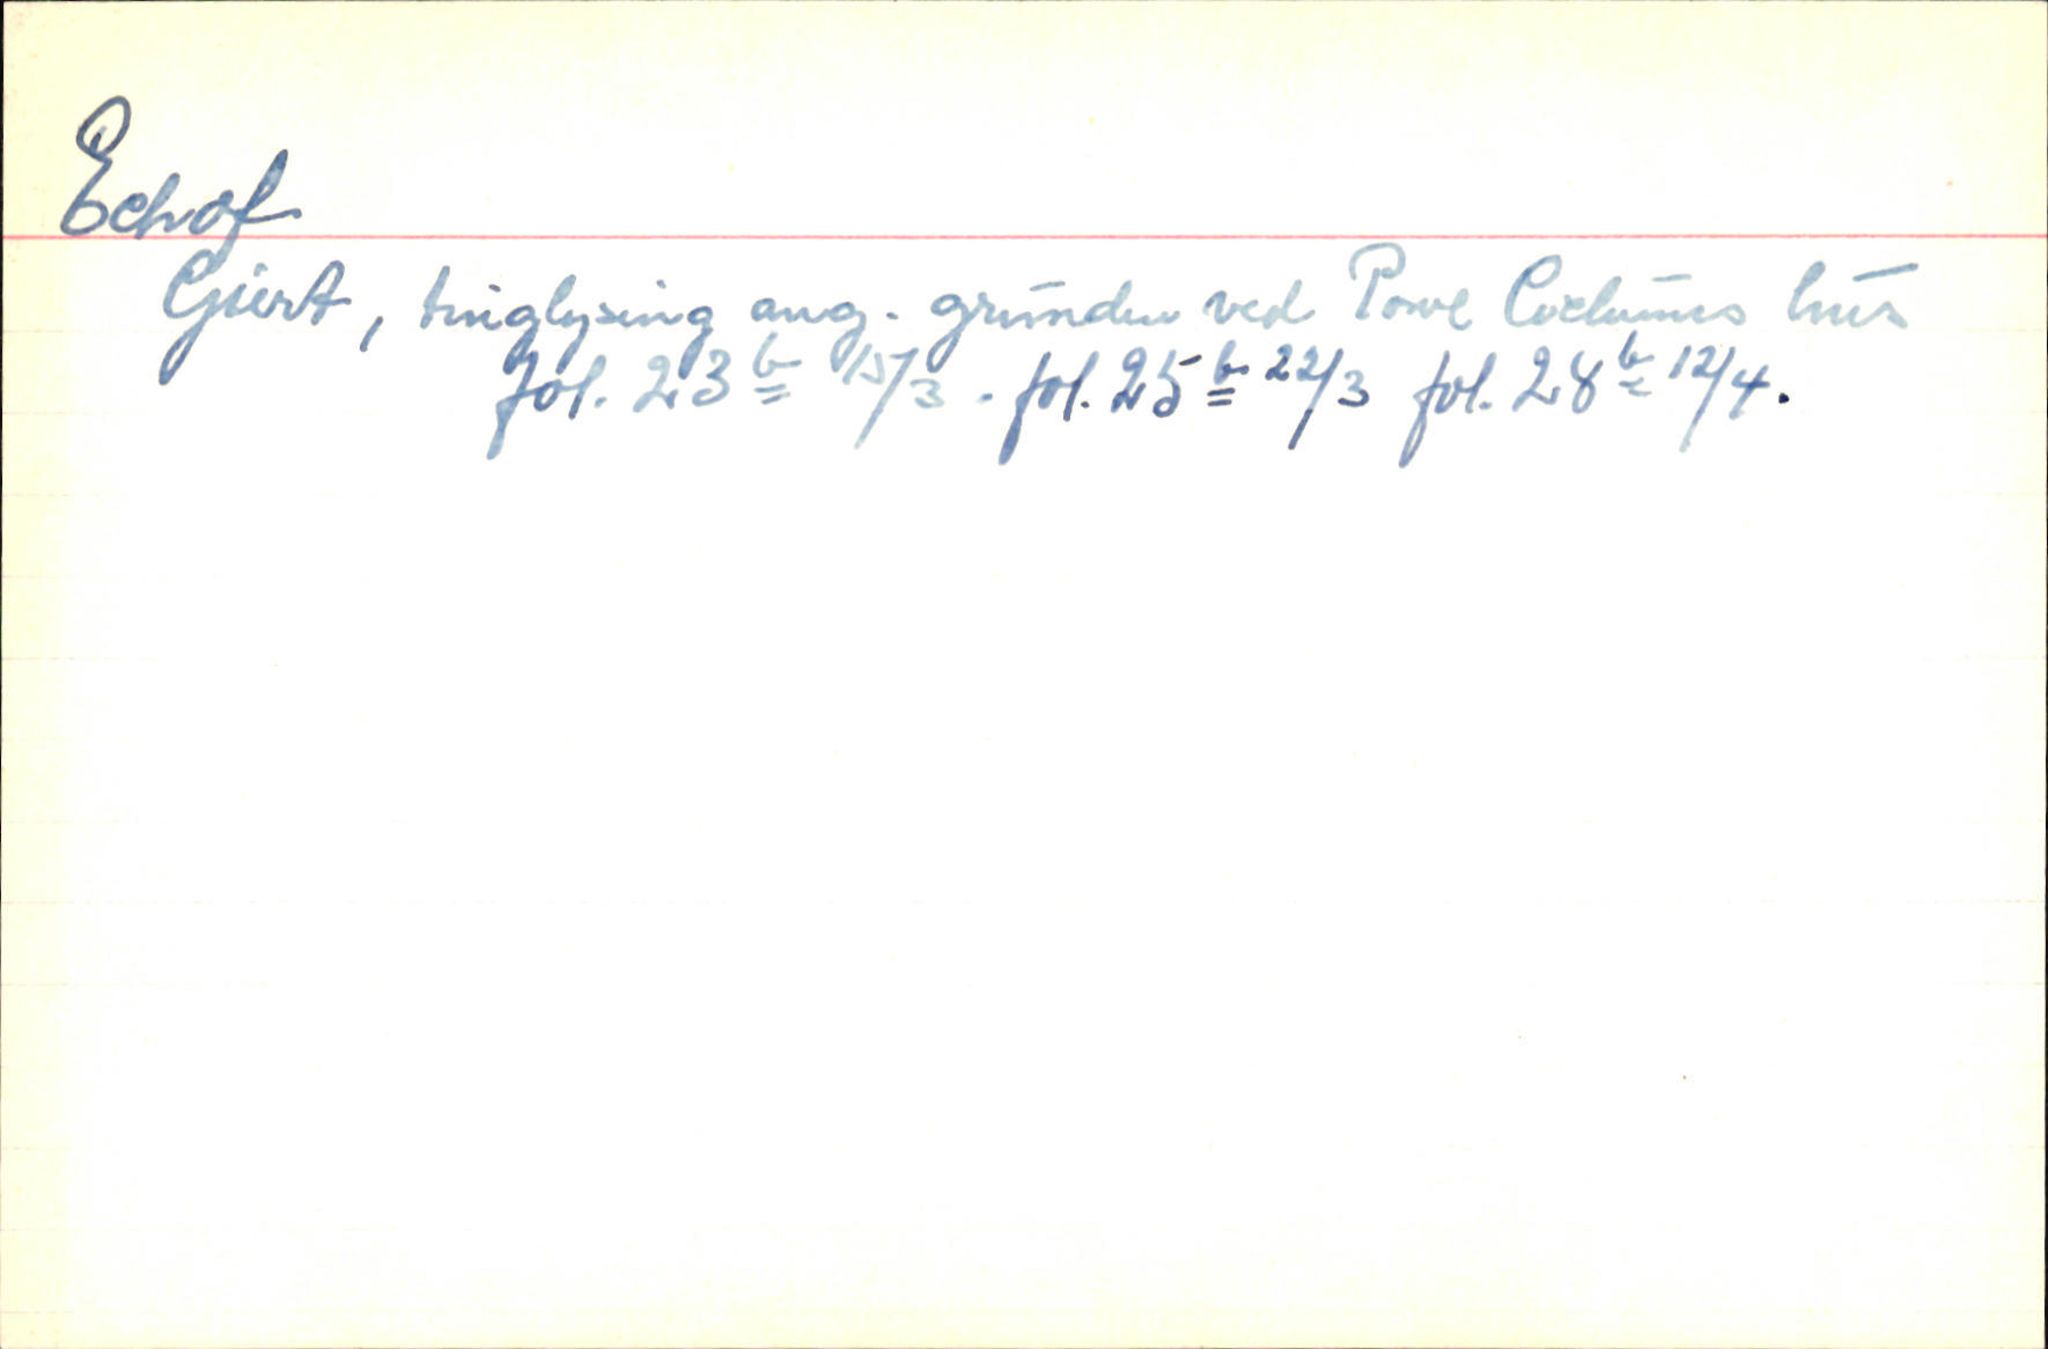 Echof
Giert, tinglysing ang. grunden ved Powl Coelumes hus
fol. 23b 15/3. fol. 25b 22/3 fol. 28b 12/4.